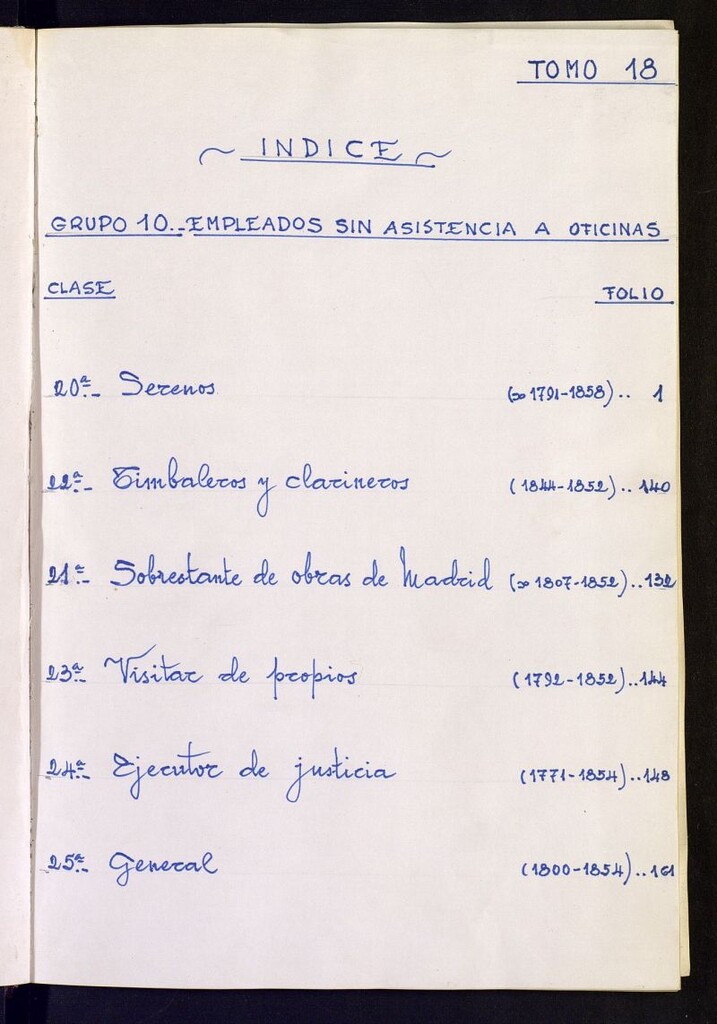 TOMO 18
INDICE
GRUPO 10.- EMPLEADOS SIN ASISTENCIA A OFICINAS
CLASE FOLIO
20ª.- Serenos (∞ 1791-1858).. 1
22ª.- Timbaleros y clarineros (1844-1852).. 140
21ª.- Sobrestante de obras de Madrid (∞ 1807-1852)..132
23ª.- Visitar de propios (1792-1852)..144
24ª.- Ejecutor de justicia (1771-1854)..148
25ª.- General (1800-1854)..161